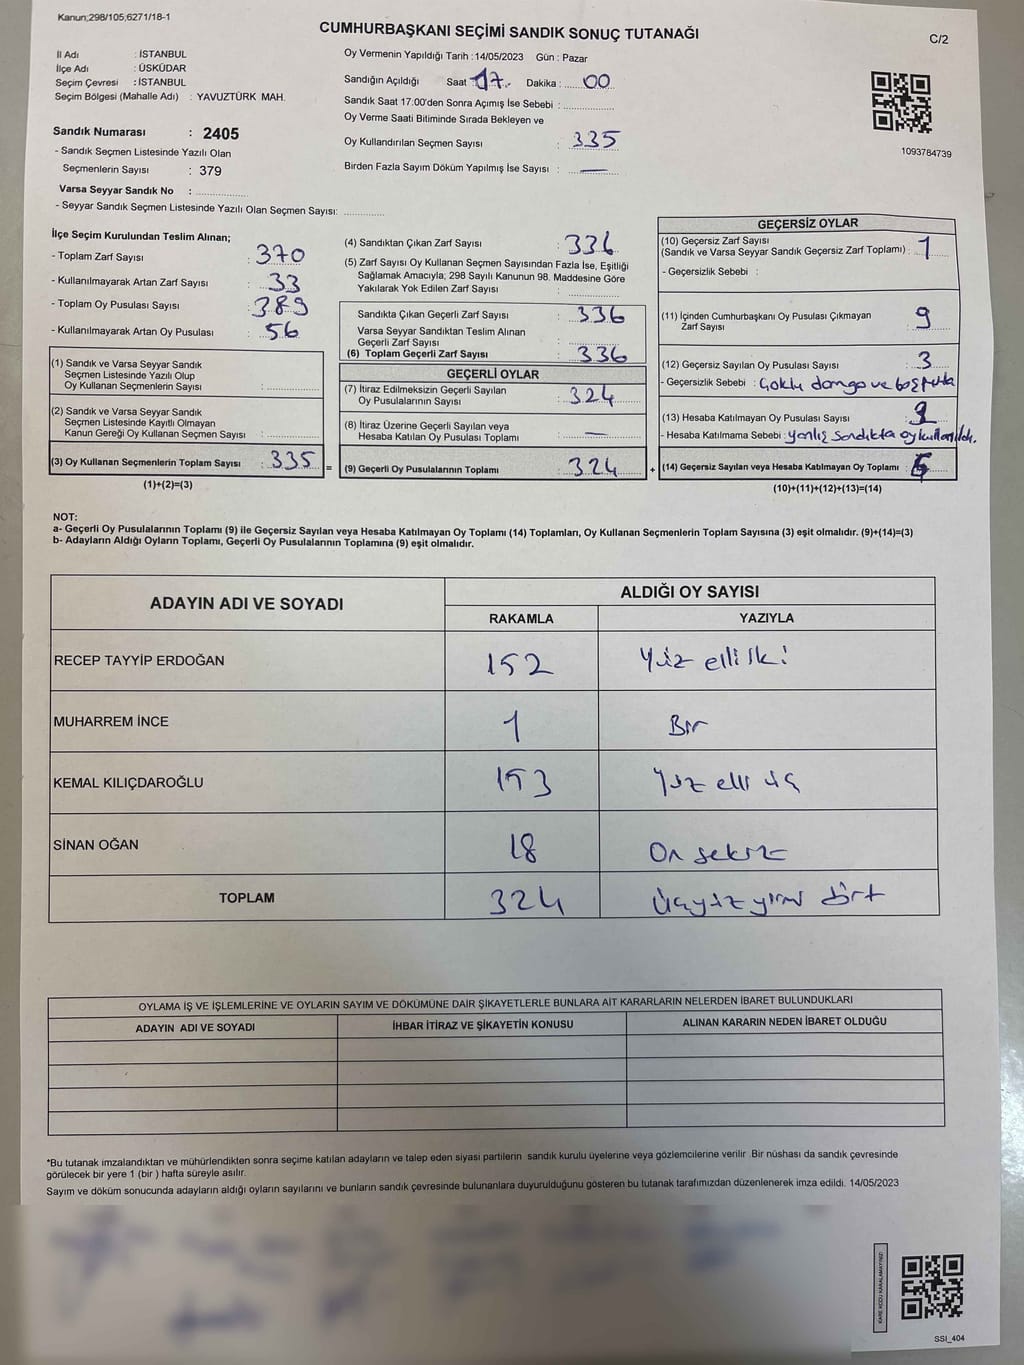 Kanun;298/105;6271/18-1
CUMHURBAŞKANI SEÇİMİ SANDIK SONUÇ TUTANAĞI
C/2
İl Adı : İSTANBUL
İlçe Adı : ÜSKÜDAR
Seçim Çevresi : İSTANBUL
Seçim Bölgesi (Mahalle Adı) : YAVUZTÜRK MAH.
Sandık Numarası : 2405
- Sandık Seçmen Listesinde Yazılı Olan
Seçmenlerin Sayısı : 379
Varsa Seyyar Sandık No :
- Seyyar Sandık Seçmen Listesinde Yazılı Olan Seçmen Sayısı:
Oy Vermenin Yapıldığı Tarih : 14/05/2023 Gün : Pazar
Sandığın Açıldığı Saat 17 Dakika : 00
Sandık Saat 17.00'den Sonra Açımış İse Sebebi :
Oy Verme Saati Bitiminde Sırada Bekleyen ve
Oy Kullandırılan Seçmen Sayısı : 335
Birden Fazla Sayım Döküm Yapılmış İse Sayısı : —
1093784739
İlçe Seçim Kurulundan Teslim Alınan;
- Toplam Zarf Sayısı : 370
- Kullanılmayarak Artan Zarf Sayısı : 33
- Toplam Oy Pusulası Sayısı : 389
- Kullanılmayarak Artan Oy Pusulası : 56
(1) Sandık ve Varsa Seyyar Sandık
Seçmen Listesinde Yazılı Olup
Oy Kullanan Seçmenlerin Sayısı :
(2) Sandık ve Varsa Seyyar Sandık
Seçmen Listesinde Kayıtlı Olmayan
Kanun Gereği Oy Kullanan Seçmen Sayısı :
(3) Oy Kullanan Seçmenlerin Toplam Sayısı : 335 =
(1)+(2)=(3)
(4) Sandıktan Çıkan Zarf Sayısı : 336
(5) Zarf Sayısı Oy Kullanan Seçmen Sayısından Fazla İse, Eşitliği
Sağlamak Amacıyla; 298 Sayılı Kanunun 98. Maddesine Göre
Yakılarak Yok Edilen Zarf Sayısı :
Sandıkta Çıkan Geçerli Zarf Sayısı : 336
Varsa Seyyar Sandıktan Teslim Alınan
Geçerli Zarf Sayısı :
(6) Toplam Geçerli Zarf Sayısı : 336
GEÇERLİ OYLAR
(7) İtiraz Edilmeksizin Geçerli Sayılan
Oy Pusulalarının Sayısı : 324
(8) İtiraz Üzerine Geçerli Sayılan veya
Hesaba Katılan Oy Pusulası Toplamı : —
(9) Geçerli Oy Pusulalarının Toplamı : 324 +
GEÇERSİZ OYLAR
(10) Geçersiz Zarf Sayısı
(Sandık ve Varsa Seyyar Sandık Geçersiz Zarf Toplamı) : 1
- Geçersizlik Sebebi :
(11) İçinden Cumhurbaşkanı Oy Pusulası Çıkmayan
Zarf Sayısı : 9
(12) Geçersiz Sayılan Oy Pusulası Sayısı : 3
- Geçersizlik Sebebi : Çoklu damga ve boş pusula
(13) Hesaba Katılmayan Oy Pusulası Sayısı :
- Hesaba Katılmama Sebebi : yanlış sandıkta oy kullanıldı.
(14) Geçersiz Sayılan veya Hesaba Katılmayan Oy Toplamı :
(10)+(11)+(12)+(13)=(14)
NOT:
a- Geçerli Oy Pusulalarının Toplamı (9) ile Geçersiz Sayılan veya Hesaba Katılmayan Oy Toplamı (14) Toplamları, Oy Kullanan Seçmenlerin Toplam Sayısına (3) eşit olmalıdır. (9)+(14)=(3)
b- Adayların Aldığı Oyların Toplamı, Geçerli Oy Pusulalarının Toplamına (9) eşit olmalıdır.
ADAYIN ADI VE SOYADI
ALDIĞI OY SAYISI
RAKAMLA YAZIYLA
RECEP TAYYİP ERDOĞAN 152 Yüz elli iki
MUHARREM İNCE 1 Bir
KEMAL KILIÇDAROĞLU 153 Yüz elli üç
SİNAN OĞAN 18 On sekiz
TOPLAM 324 Üçyüz yirmi dört
OYLAMA İŞ VE İŞLEMLERİNE VE OYLARIN SAYIM VE DÖKÜMÜNE DAİR ŞİKAYETLERLE BUNLARA AİT KARARLARIN NELERDEN İBARET BULUNDUKLARI
ADAYIN ADI VE SOYADI İHBAR İTİRAZ VE ŞİKAYETİN KONUSU ALINAN KARARIN NEDEN İBARET OLDUĞU
*Bu tutanak imzalandıktan ve mühürlendikten sonra seçime katılan adayların ve talep eden siyasi partilerin sandık kurulu üyelerine veya gözlemcilerine verilir .Bir nüshası da sandık çevresinde
görülecek bir yere 1 (bir ) hafta süreyle asılır.
Sayım ve döküm sonucunda adayların aldığı oyların sayılarını ve bunların sandık çevresinde bulunanlara duyurulduğunu gösteren bu tutanak tarafımızdan düzenlenerek imza edildi. 14/05/2023
KARE KODU KARALAMAYINIZ!
SSI_404